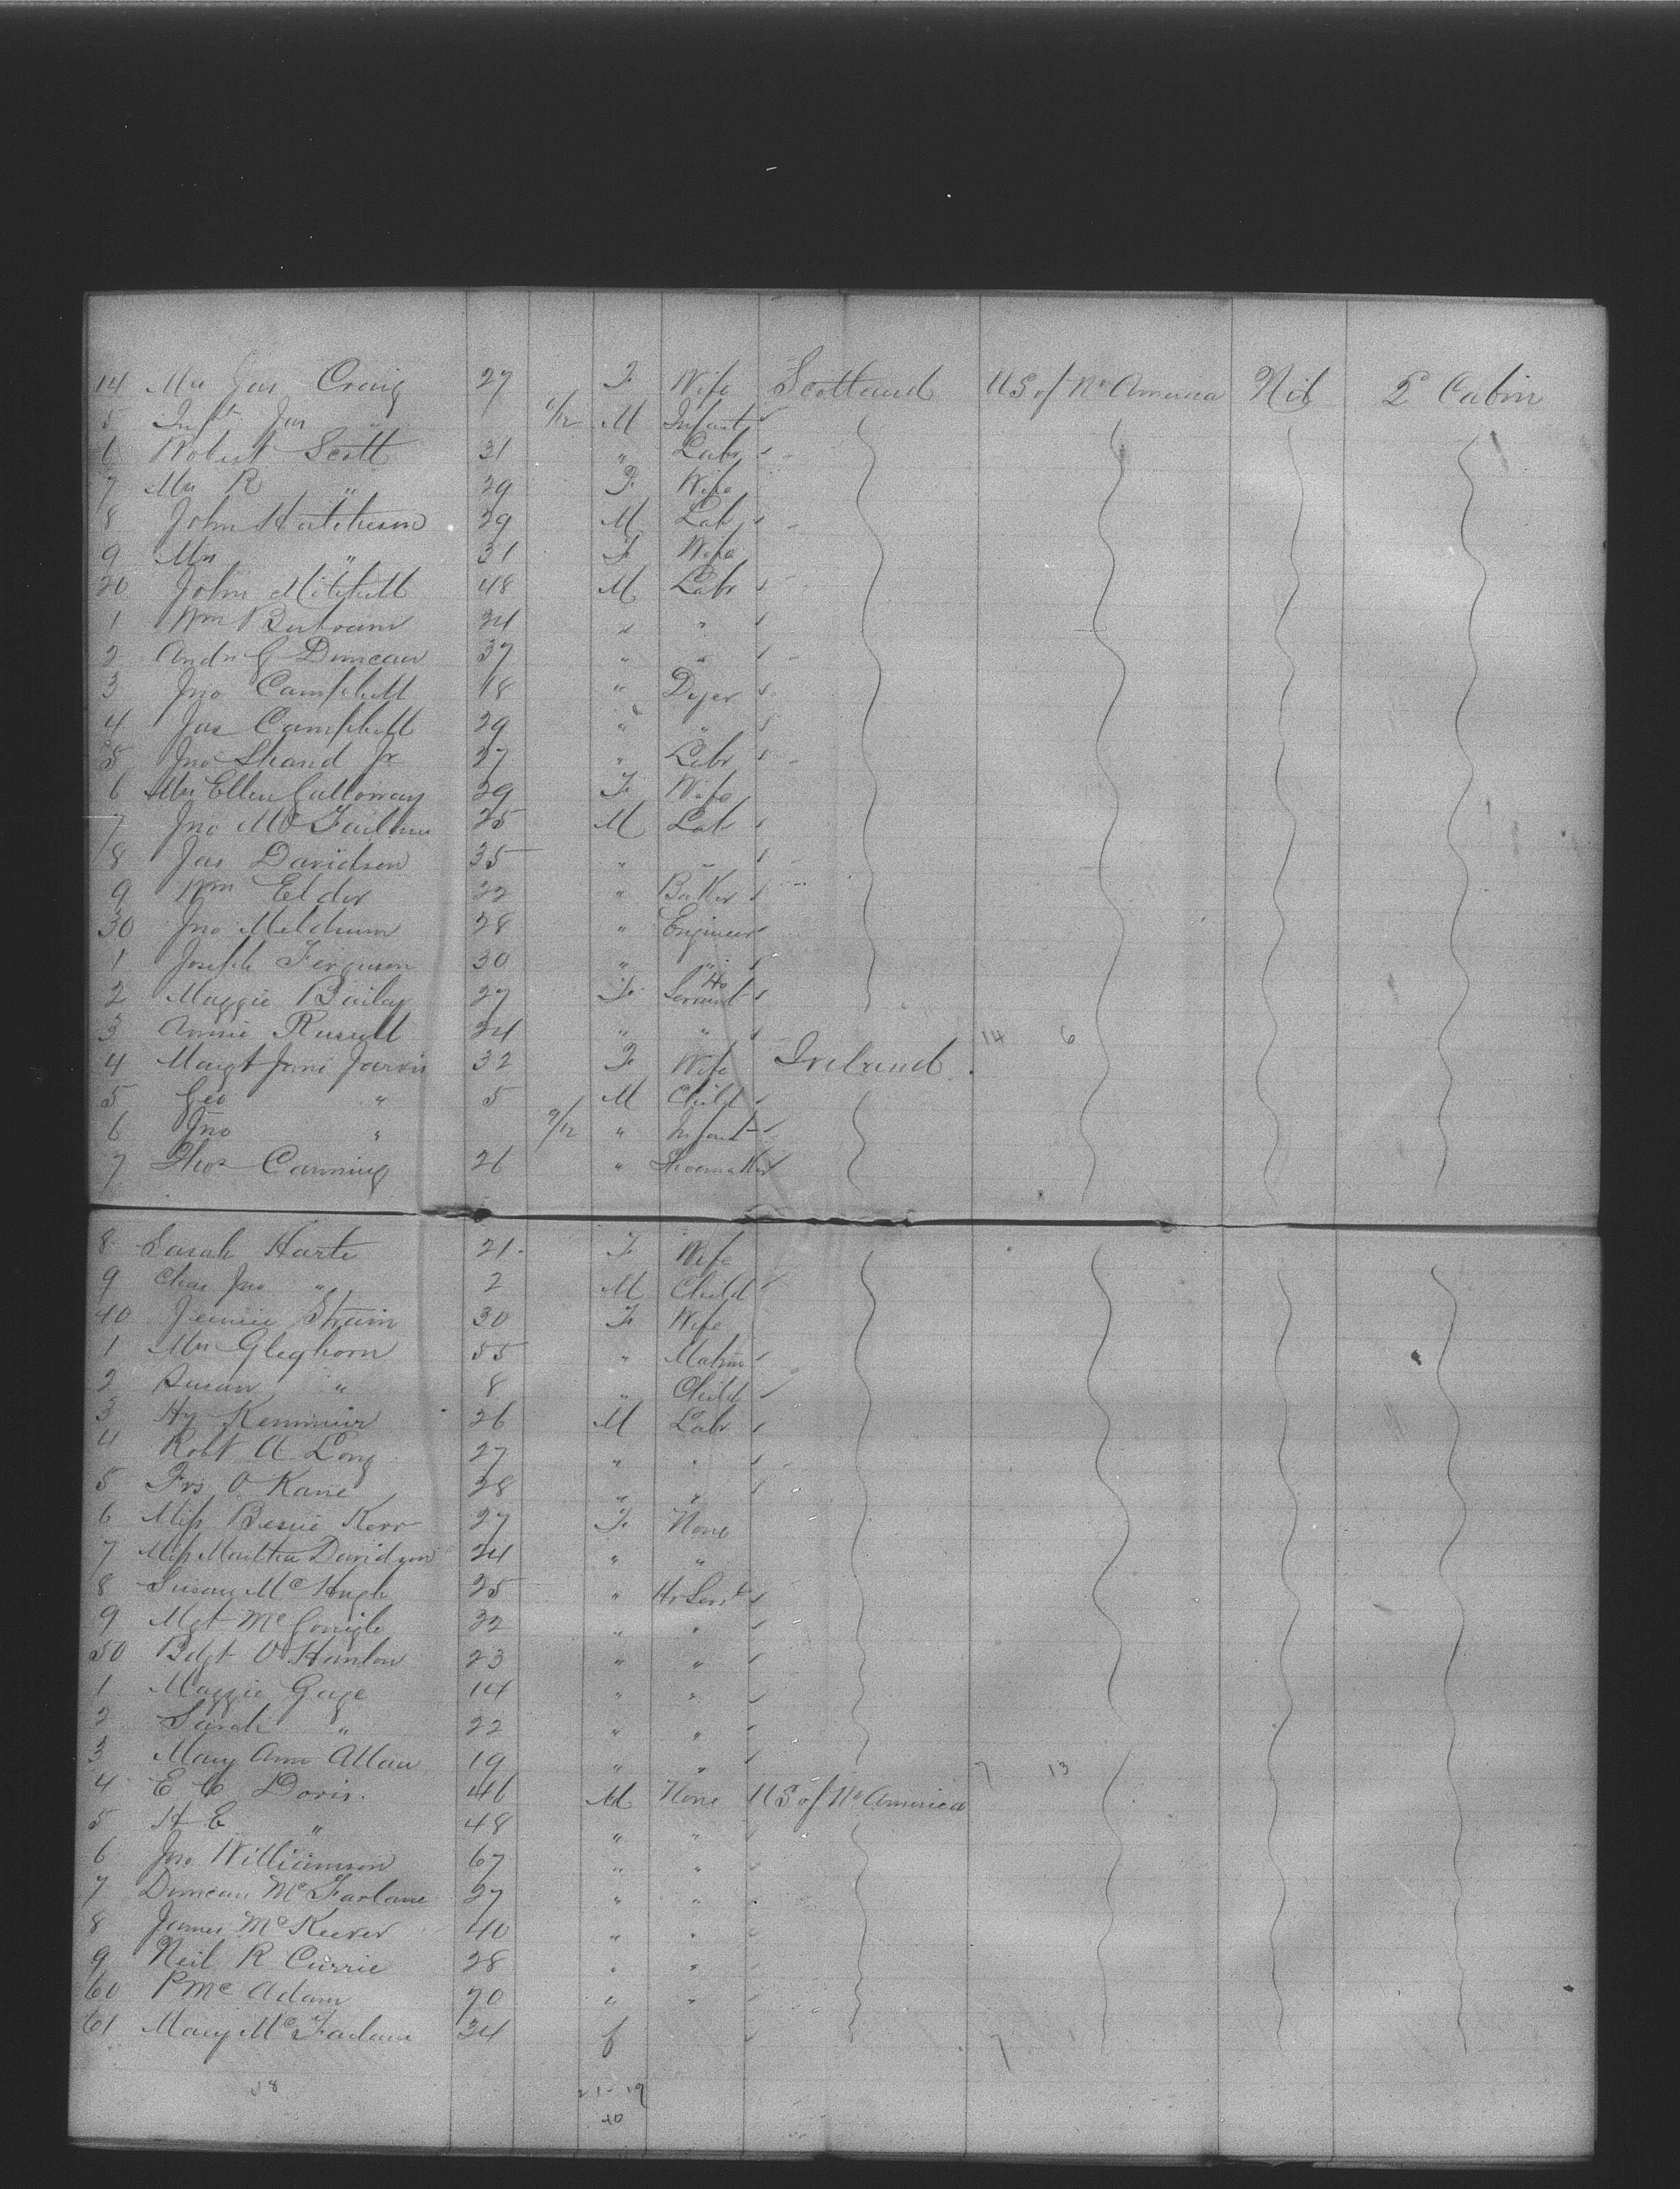 14 Mrs Jas Craig 27 F. Wife Scotland US of No America Nil 2d Cabin
5 Inft Jas " 6/12 M Infant
6 Robert Scott 31 " Labr
7 Mrs R " 29 F. Wife
8 John Hutcheson 29 M Lab
9 Mrs " 31 F. Wife
20 John Mitchell 48 M Labr
1 Wm Bertram 24 " "
2 Andw G Duncan 37 " "
3 Jno Campbell 18 " Dyer
4 Jas Campbell 29 " "
5 Jno Shand Jr 27 " Labr
6 Mrs Ellen Galloway 29 F. Wife
7 Jno McFarlane 25 M Lab
8 Jas Davidson 35 " "
9 Wm Elder 22 " Baker
30 Jno Meldrum 28 " Engineer
1 Joseph Ferguson 30 " "
2 Maggie Bailey 27 F. Ho Servant
3 Annie Russell 24 " " 14 6
4 Margt Jane Jarvis 32 F. Wife Ireland
5 Geo " 5 M Child
6 Jno " 9/12 " Infant
7 Thos Canning 26 " Shoemaker
8 Sarah Harte 21 F. Wife
9 Chas Jno " 2 M Child
40 Jennie Strain 30 F. Wife
1 Mrs Gleghorn 55 " Matron
2 Susan " 8 " Child
3 Hy Kenmuir 26 M Labr
4 Robt A Long 27 " "
5 Frs O Kane 28 " "
6 Miss Bessie Kerr 27 F. None
7 Miss Martha Davidson 24 " "
8 Susan McHugh 25 " Ho Servt
9 Mgt McGonigle 32 " "
50 Bdgt O Hanlon 23 " "
1 Maggie Gage 14 " "
2 Sarah " 22 " "
3 Mary Ann Allan 19 " " 7 13
4 E C Doris. 46 M None US of No America
5 H E " 48 " "
6 Jno Williamson 67 " "
7 Duncan McFarlane 27 " "
8 James McKeever 40 " "
9 Neil R Currie 28 " "
60 P McAdam 70 " "
61 Mary McFarlane 34 f 7
58 21-19
40